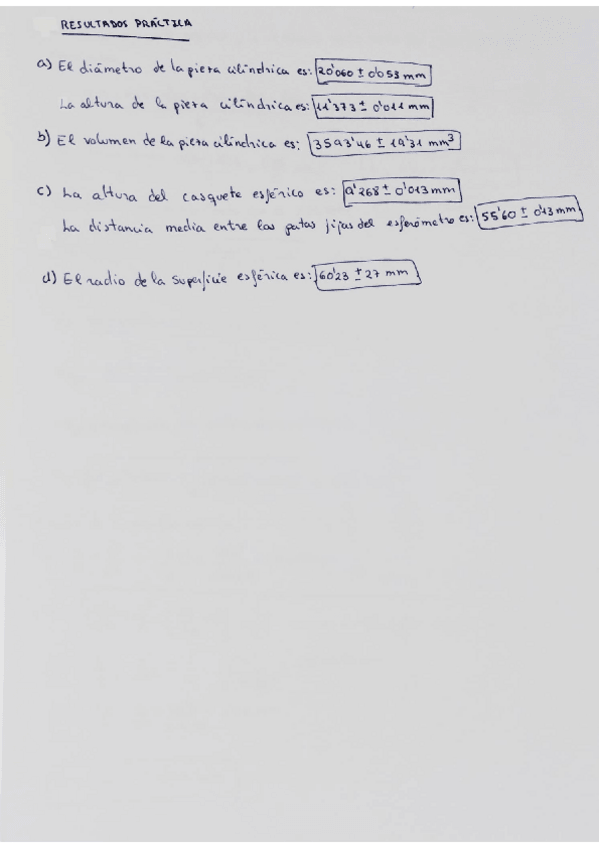 RESULTADOS PRÁCTICA
a) El diámetro de la pieza cilíndrica es: 20'060 ± 0'053 mm
La altura de la pieza cilíndrica es: 11'373 ± 0'011 mm
b) El volumen de la pieza cilíndrica es: 3593'46 ± 19'31 mm³
c) La altura del casquete esférico es: 9'268 ± 0'013 mm
La distancia media entre las patas fijas del esferómetro es: 55'60 ± 0'13 mm
d) El radio de la superficie esférica es: 60'23 ± 27 mm